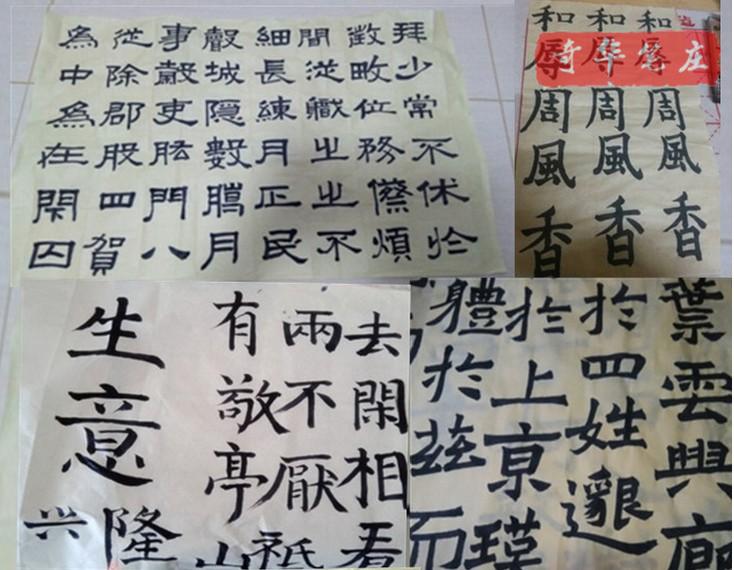 為從事聲細間徵拜
中除穀城長從畋少
為郡吏隱練職位常
在股肱數月之務不
閉四門臘正之祭休
囚賀八月民不煩於
和和和
周周周
風風風
香香香
琦华
去閑相看
兩不厭衹
有敬亭山
生意
兴隆
葉雲興廊
於四姓邈
於上京
體於茲而